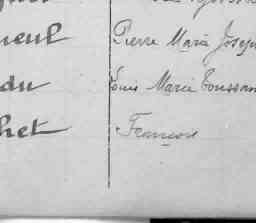 neul Pierre Marie Joseph
du Louis Marie Toussaint
het François